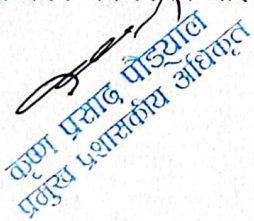 कृष्ण प्रसाद पौड्याल
प्रमुख प्रशासकीय अधिकृत